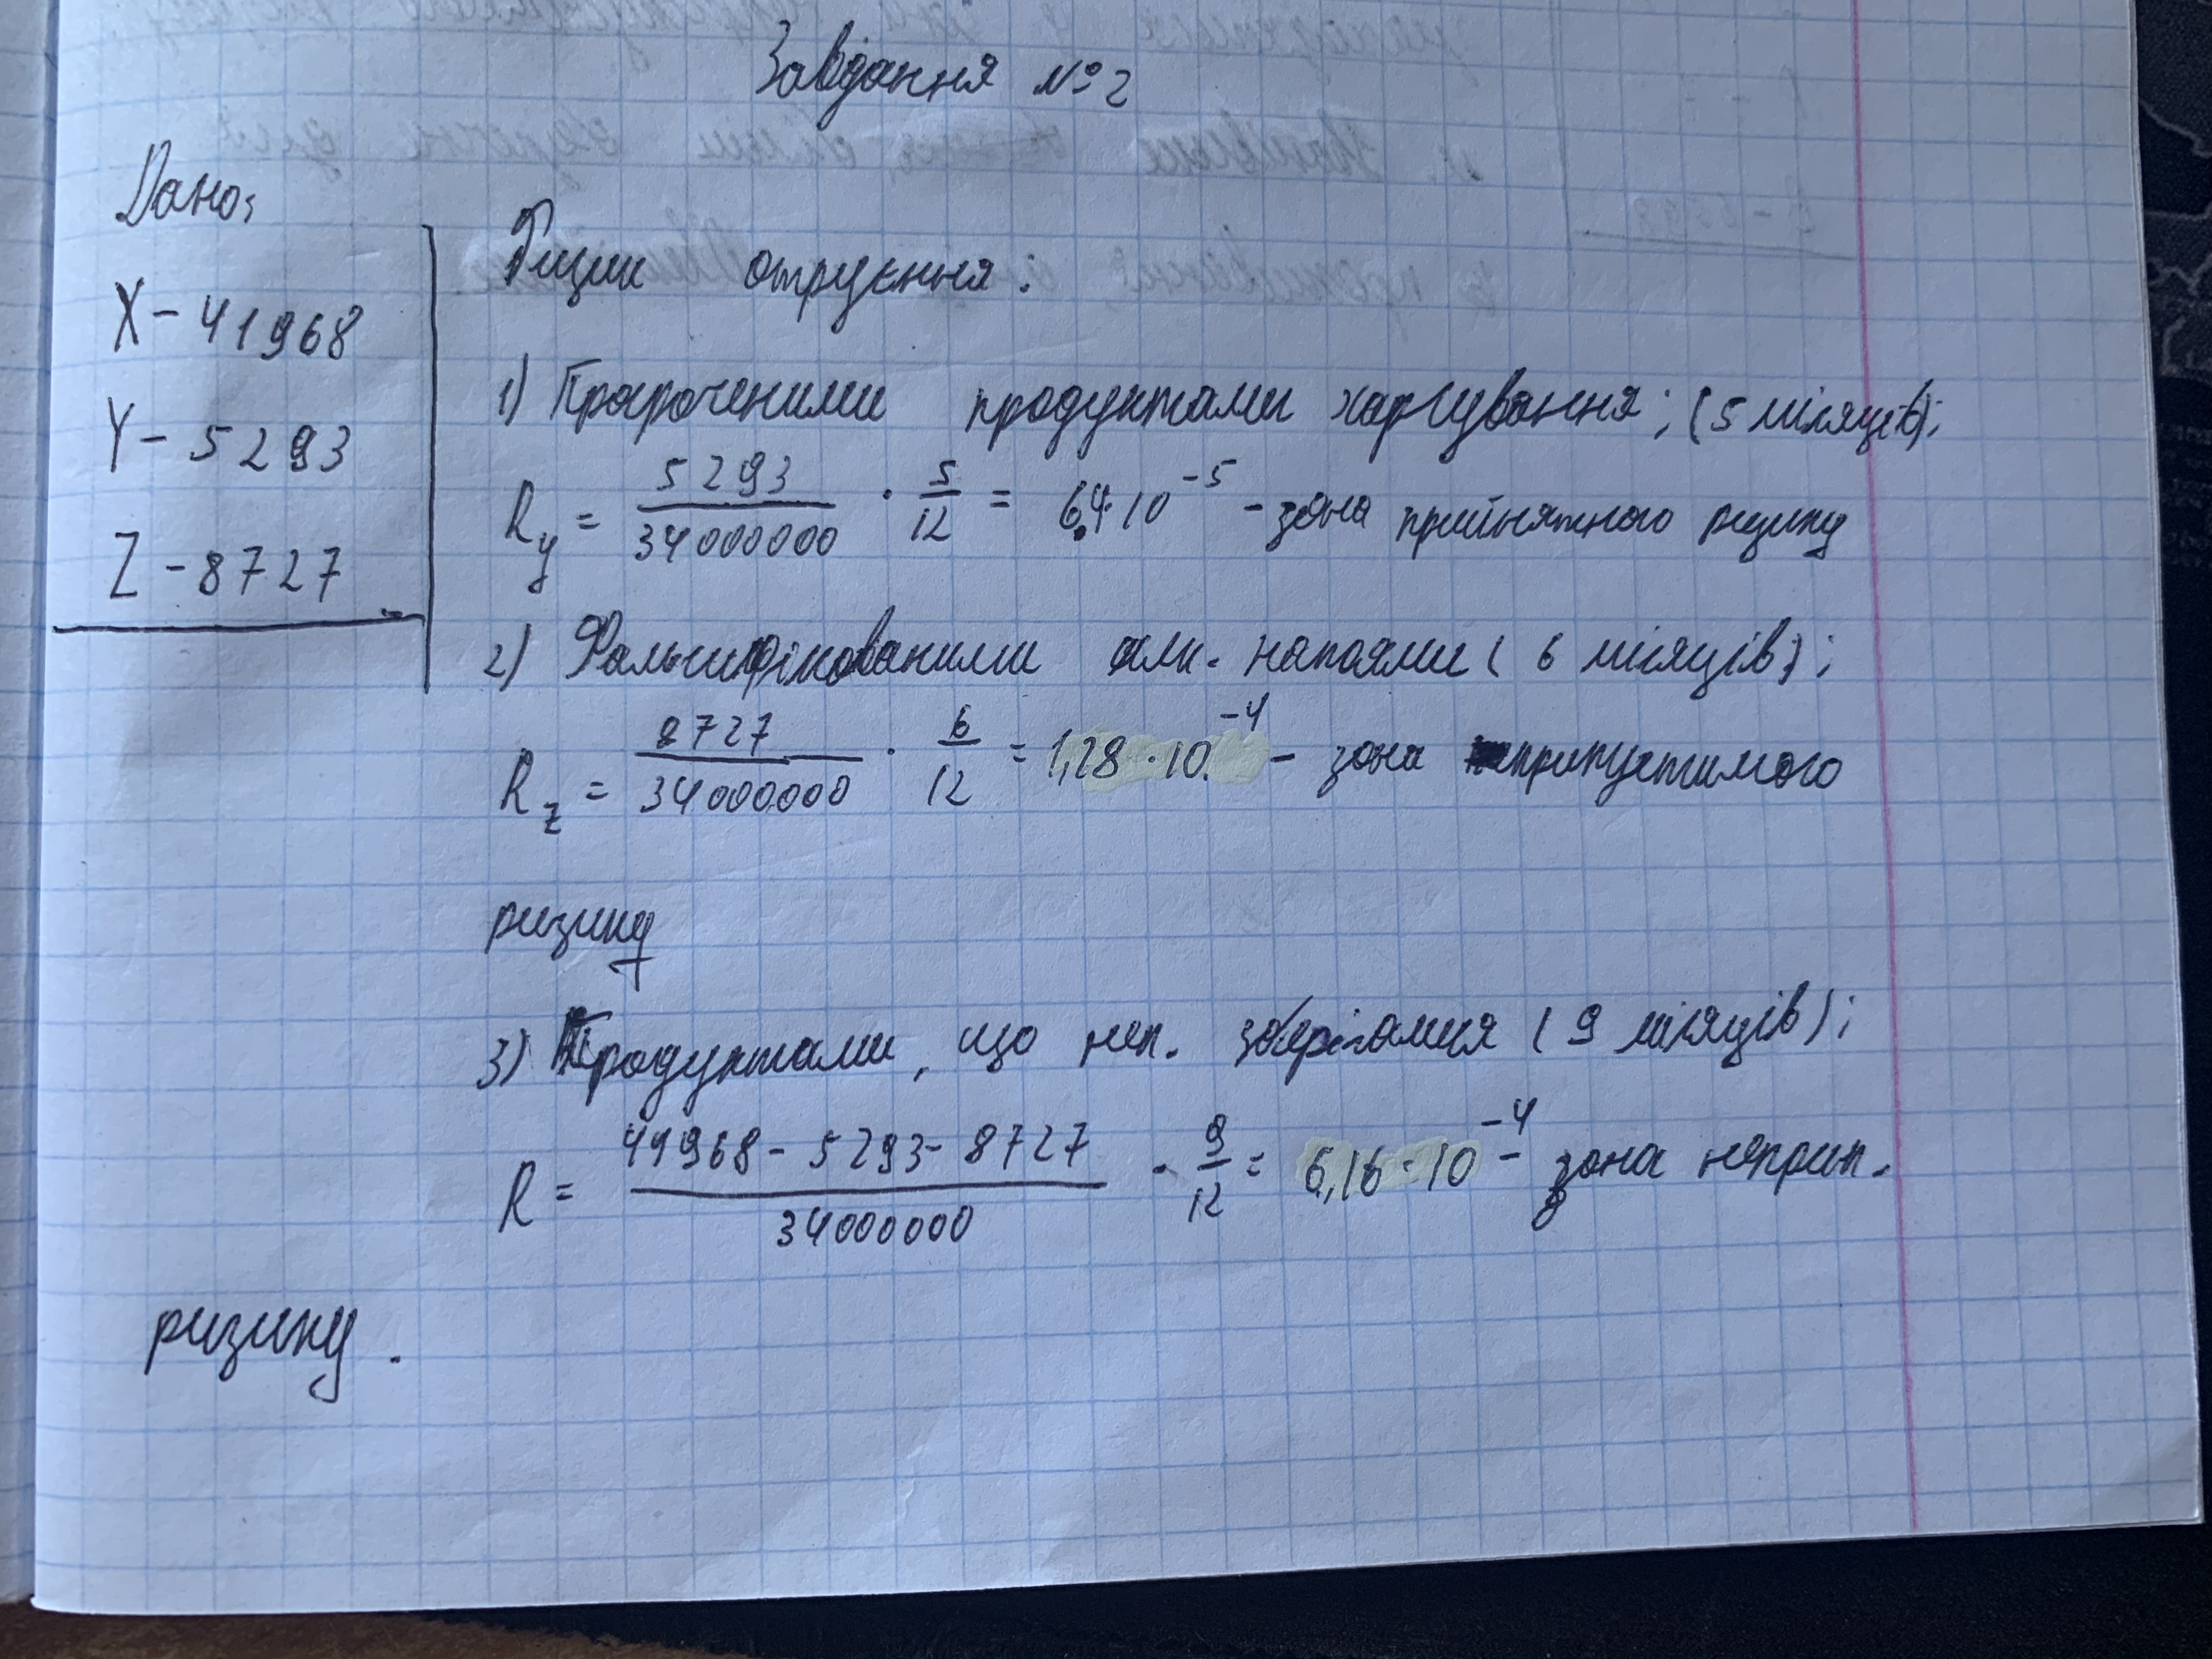 Завдання №2
Дано:
X - 41968
Y - 5293
Z - 8727
Ризик отруєння:
1) Простроченими продуктами харчування; (5 місяців);
Ry = 5293/34000000 · 5/12 = 6,4·10^-5 - зона прийнятного ризику
2) Фальсифікованими алк. напоями (6 місяців);
Rz = 8727/34000000 · 6/12 = 1,28·10^-4 - зона припустимого
ризику
3) Продуктами, що неп. зберігалися (9 місяців);
R = 41968 - 5293 - 8727/34000000 · 9/12 = 6,16·10^-4 - зона неприп.
ризику.